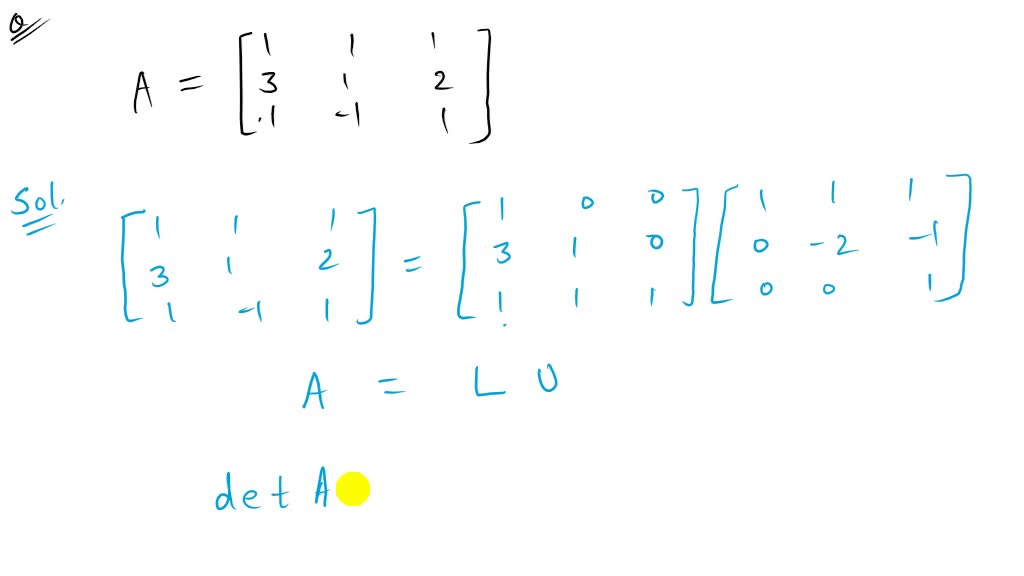 Q
A = [ 1 1 1
3 1 2
.1 -1 1 ]
Sol.
[ 1 1 1
3 1 2
1 -1 1 ] = [ 1 0 0
3 1 0
1 1 1 ] [ 1 1 1
0 -2 -1
0 0 1 ]
A = L U
det A